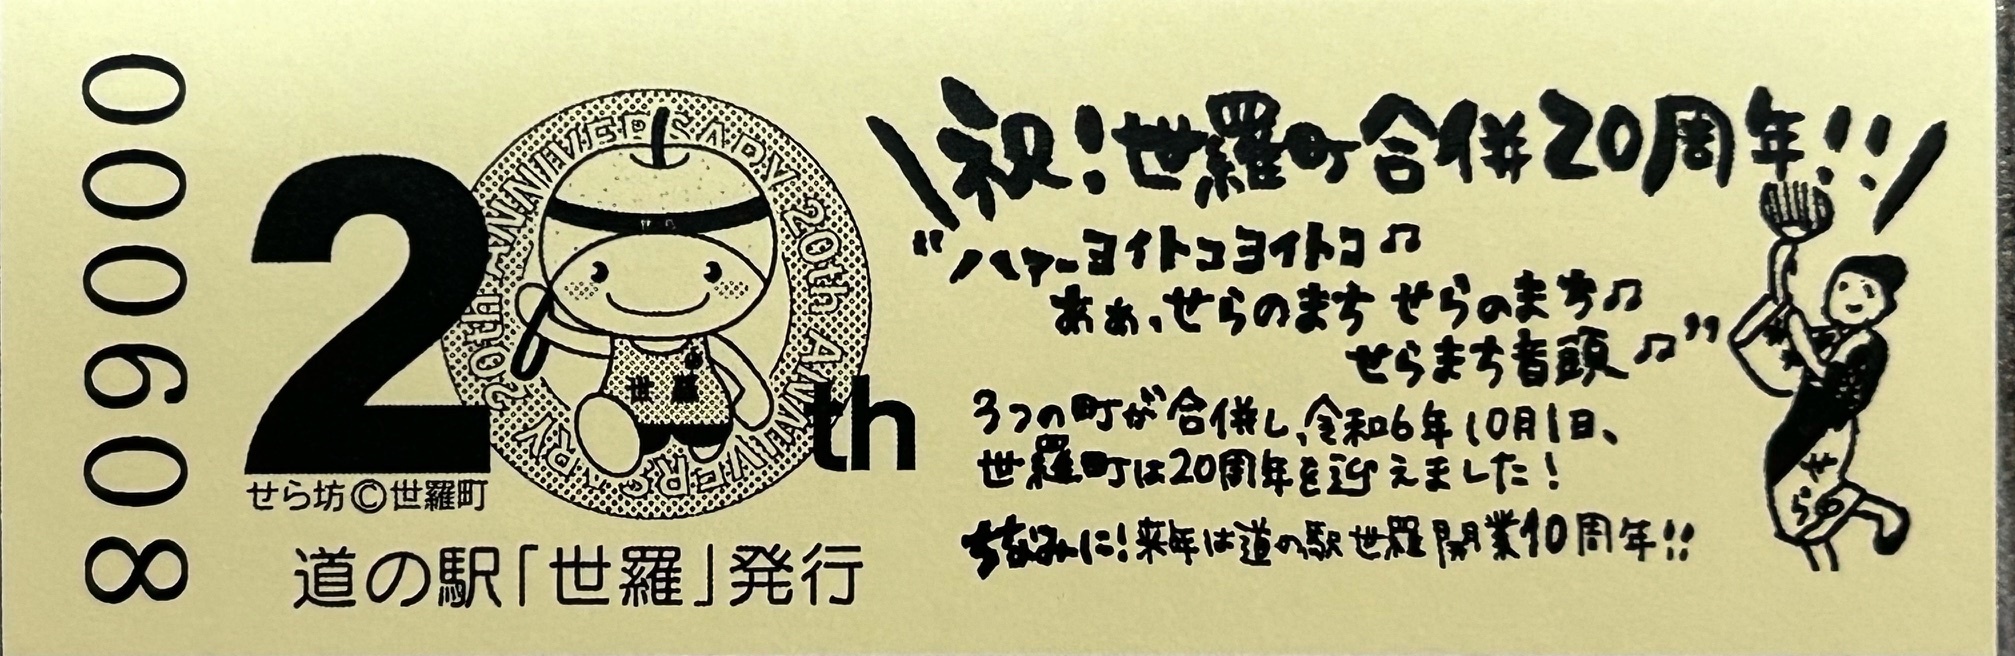 000608
20th
20th ANNIVERSARY 20th ANNIVERSARY
世羅
せら坊©世羅町
道の駅「世羅」発行
祝!世羅町合併20周年!!
"ハァーヨイトコヨイトコ♫
あぁ、せらのまち せらのまち♫
せらまち音頭♫"
3つの町が合併し、令和6年10月1日、
世羅町は20周年を迎えました!
ちなみに!来年は道の駅世羅開業10周年!!
せら